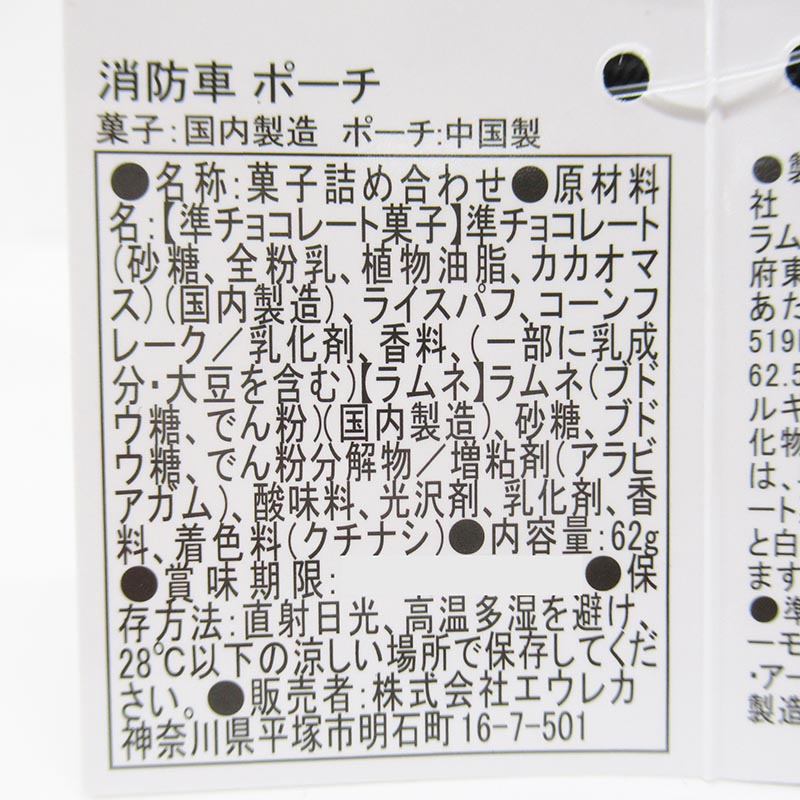 消防車 ポーチ
菓子:国内製造 ポーチ:中国製
●名称:菓子詰め合わせ●原材料
名:【準チョコレート菓子】準チョコレート
(砂糖、全粉乳、植物油脂、カカオマ
ス)(国内製造)、ライスパフ、コーンフ
レーク/乳化剤、香料、(一部に乳成
分・大豆を含む)【ラムネ】ラムネ(ブド
ウ糖、でん粉)(国内製造)、砂糖、ブド
ウ糖、でん粉分解物/増粘剤(アラビ
アガム)、酸味料、光沢剤、乳化剤、香
料、着色料(クチナシ)●内容量:62g
●賞味期限: ●保
存方法:直射日光、高温多湿を避け、
28℃以下の涼しい場所で保存してくだ
さい。●販売者:株式会社エウレカ
神奈川県平塚市明石町16-7-501
●製
社
ラム
府東
あた
519
62.5
ルキ
化物
は、
ート
と白
ます
●準
ーモ
・アー
製造